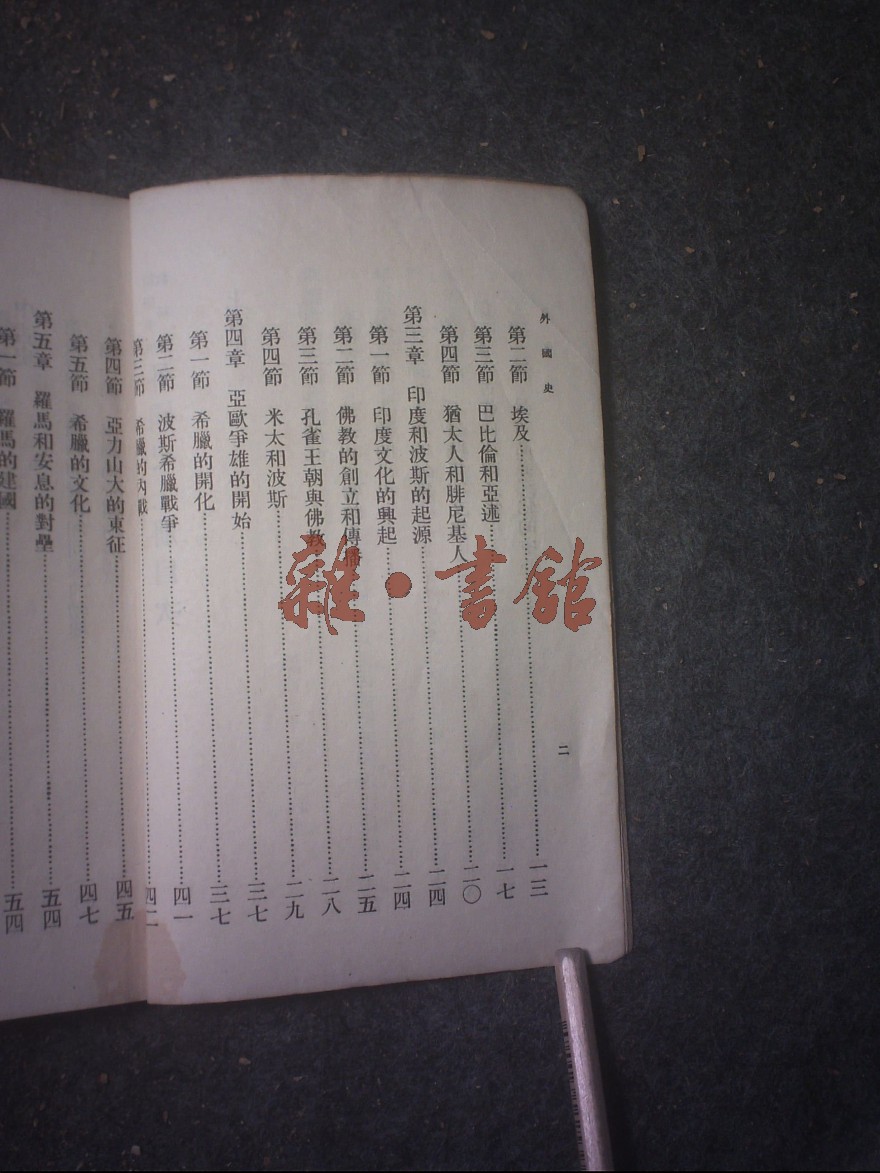 外國史
第二節 埃及……一三
第三節 巴比倫和亞述……一七
第四節 猶太人和腓尼基人……二〇
第三章 印度和波斯的起源……二四
第一節 印度文化的興起……二四
第二節 佛教的創立和傳播……二五
第三節 孔雀王朝與佛教……二八
第四節 米太和波斯……二九
第四章 亞歐爭雄的開始……三七
第一節 希臘的開化……三七
第二節 波斯希臘戰爭……四一
第三節 希臘的內戰……四二
第四節 亞力山大的東征……四五
第五節 希臘的文化……四七
第五章 羅馬和安息的對壘……五四
第一節 羅馬的建國……五四
二
雜·書館